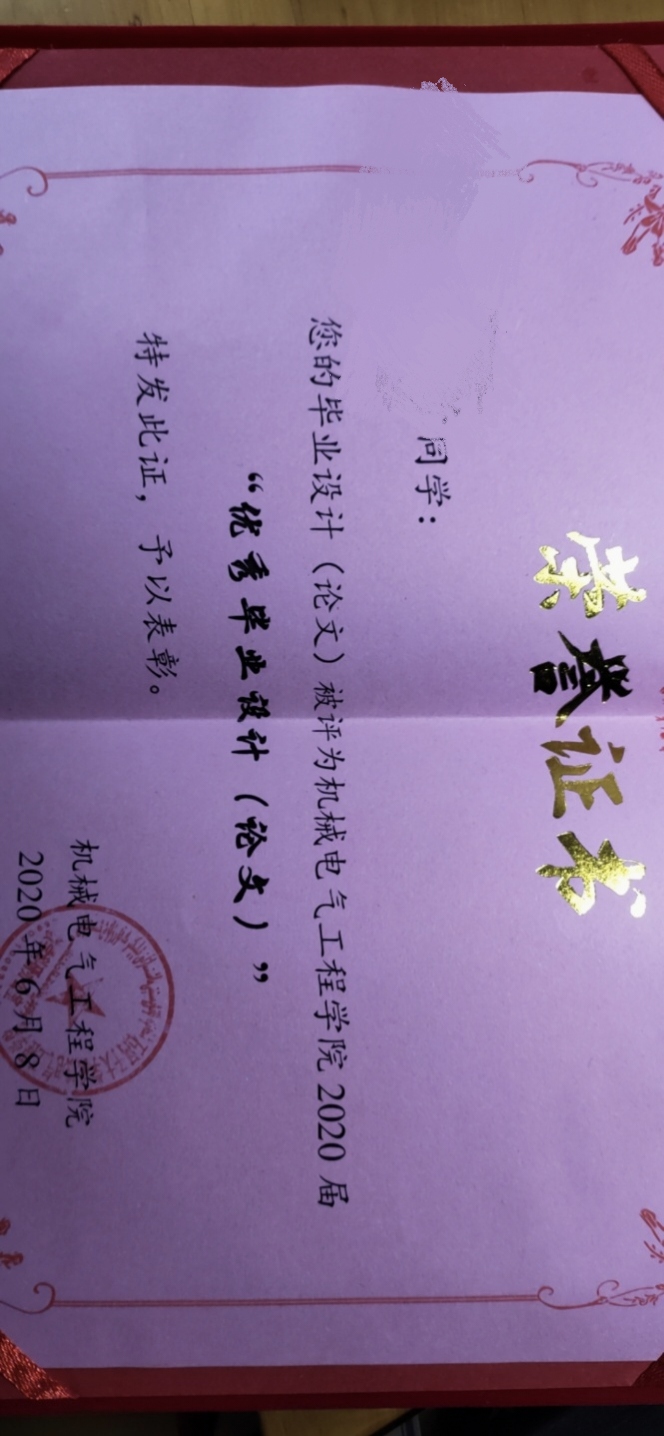 荣誉证书
同学：
您的毕业设计（论文）被评为机械电气工程学院2020届
“优秀毕业设计（论文）”
特发此证，予以表彰。
机械电气工程学院
2020年6月8日